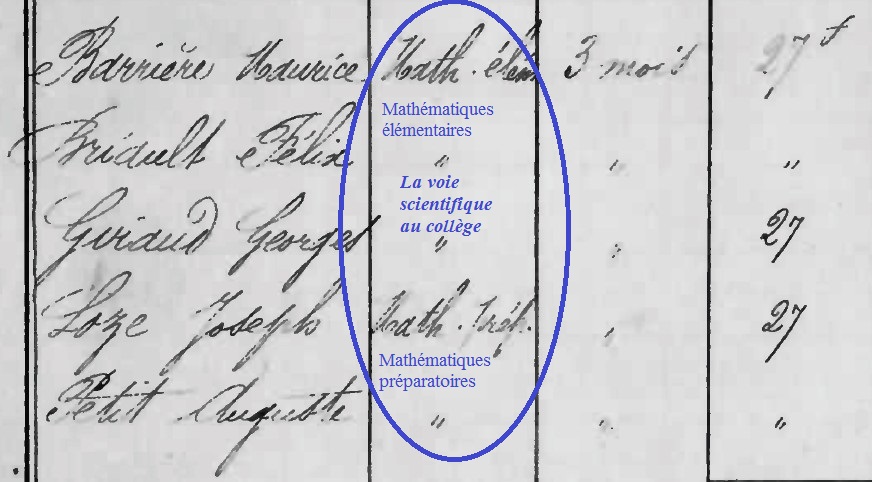 Barrière Maurice Math. élém 3 mois 27 f
Mathématiques
élémentaires
Briault Félix " " "
La voie
scientifique
au collège
Giraud Georges " " 27
Loze Joseph Math. Prép. " 27
Mathématiques
préparatoires
Petit Auguste " " "